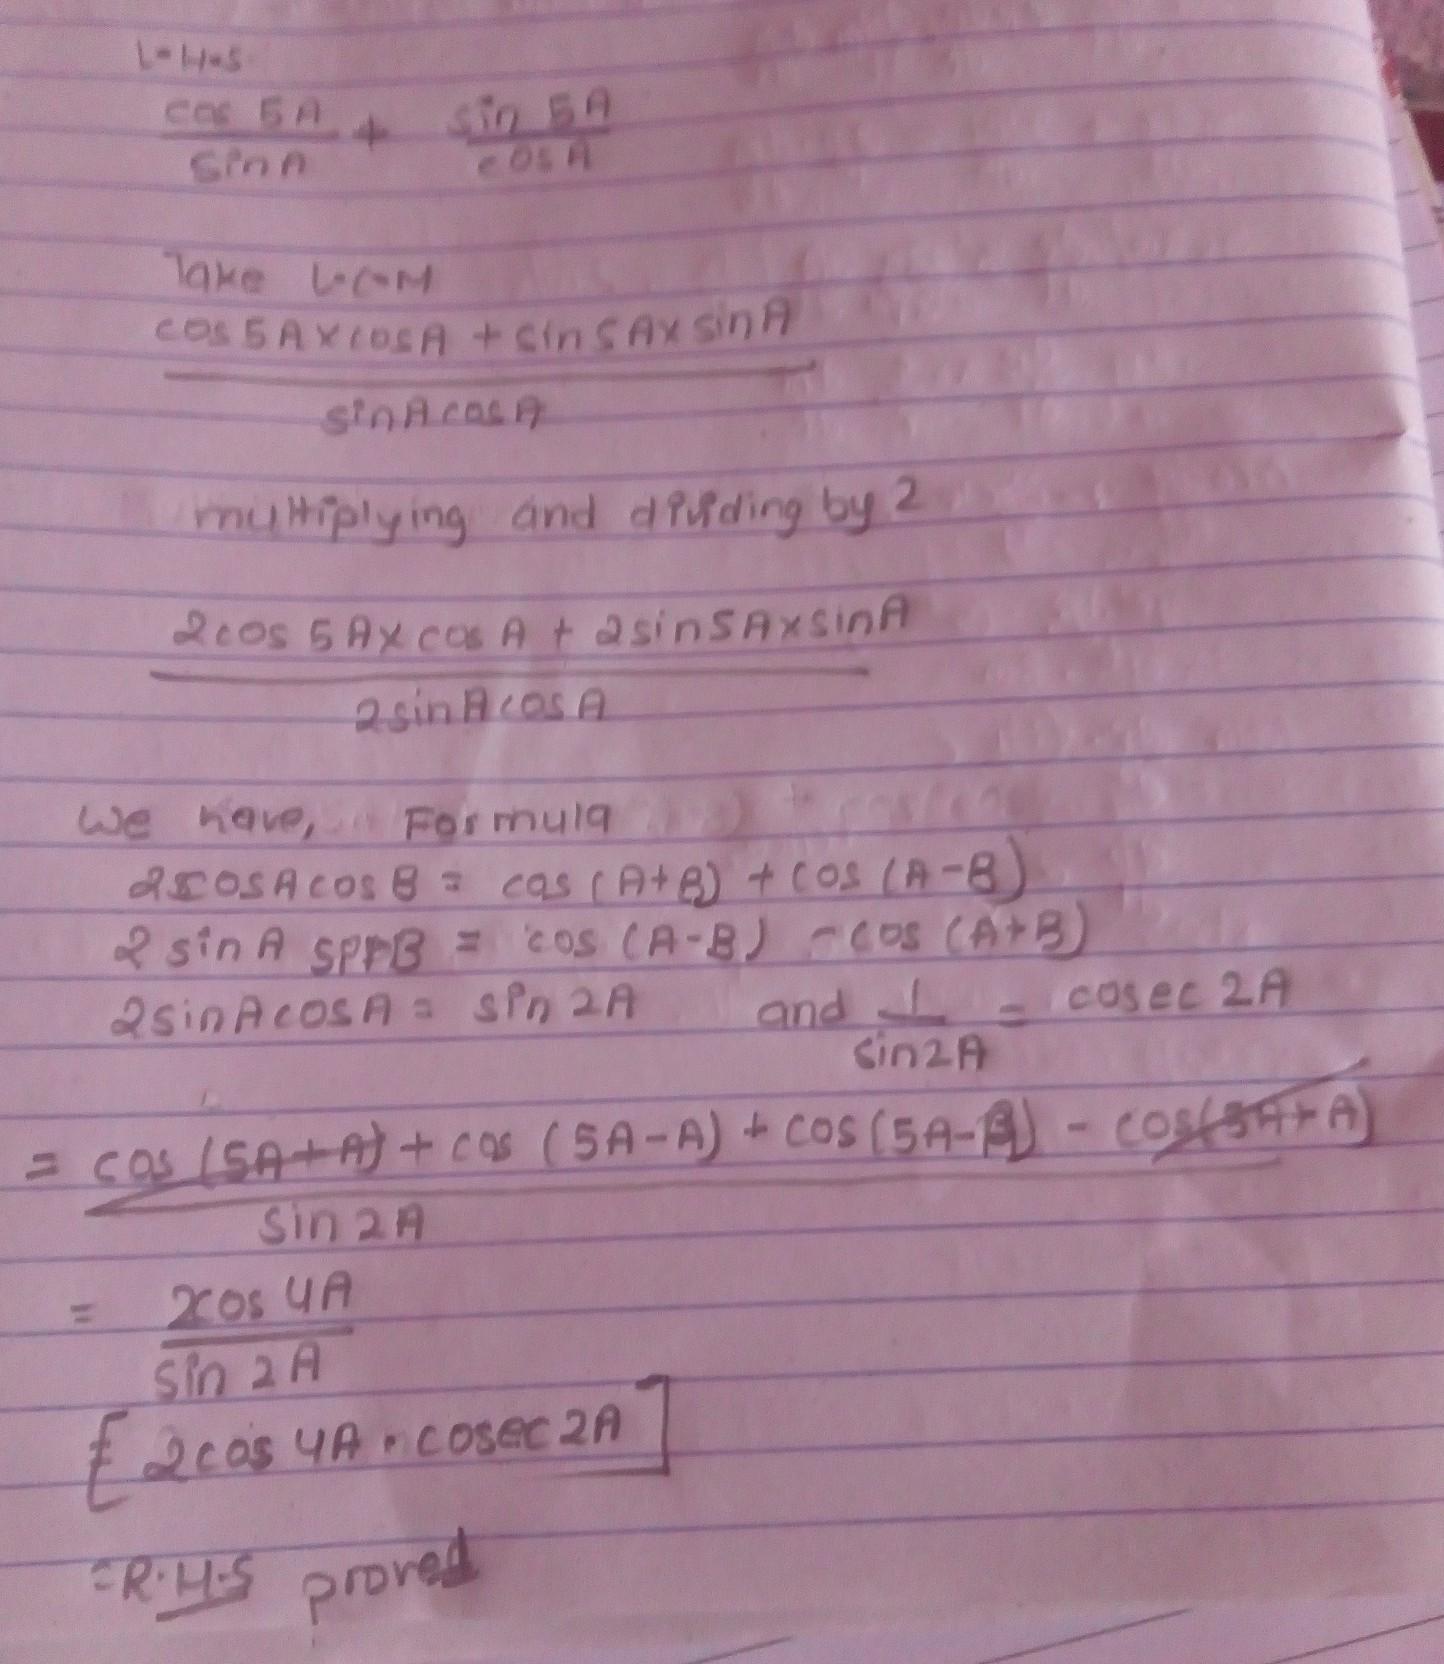 L.H.S
cos 5A / sin A + sin 5A / cos A
Take L.C.M
cos 5A × cos A + sin 5A × sin A
sin A cos A
multiplying and dividing by 2
2 cos 5A × cos A + 2 sin 5A × sin A
2 sin A cos A
We have, Formula
2 cos A cos B = cos (A+B) + cos (A-B)
2 sin A sin B = cos (A-B) - cos (A+B)
2 sin A cos A = sin 2A and 1 / sin 2A = cosec 2A
= cos (5A+A) + cos (5A-A) + cos (5A-A) - cos (5A+A)
sin 2A
= 2 cos 4A
sin 2A
[ 2 cos 4A . cosec 2A ]
= R.H.S proved